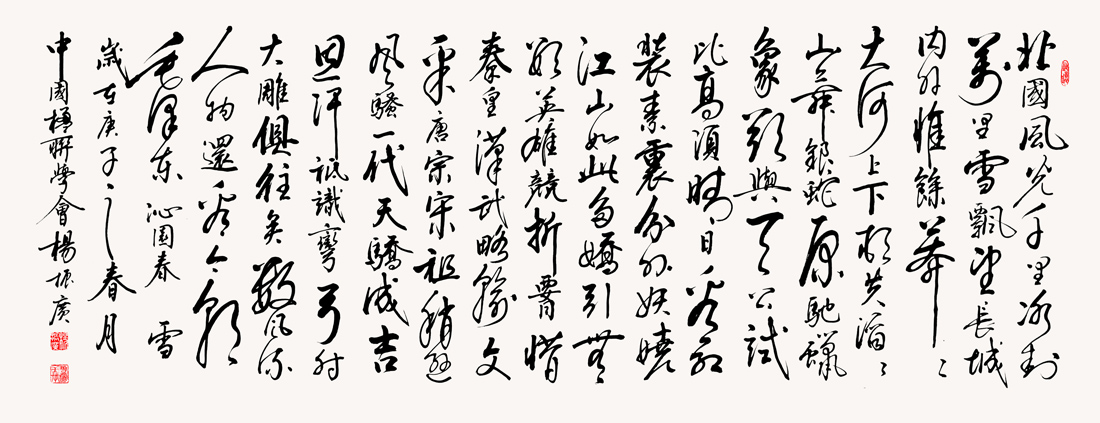 北國風光千里冰封
萬里雪飄望長城
內外惟餘莽〻
大河上下頓失滔〻
山舞銀蛇原馳蠟
象欲與天公試
比高須晴日看紅
裝素裹分外妖嬈
江山如此多嬌引無
數英雄競折腰惜
秦皇漢武略輸文
采唐宗宋祖稍遜
風騷一代天驕成吉
思汗祗識彎弓射
大雕俱往矣數風流
人物還看今朝
毛澤東 沁園春 雪
歲在庚子之春月
中國楹聯學會楊振廣